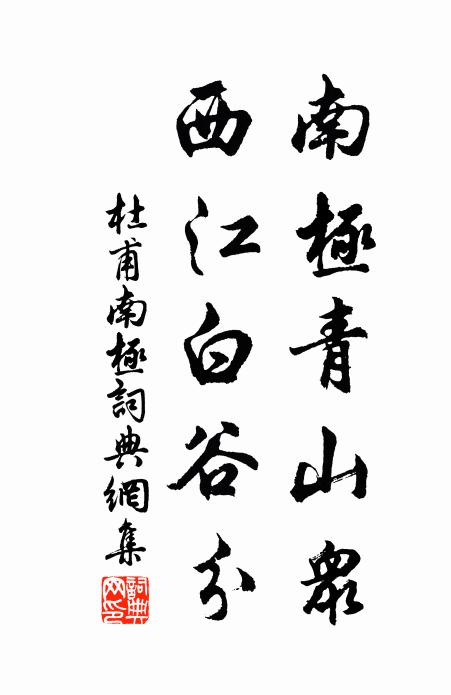 南極青山眾
西江白谷分
杜甫南極詞典網集
詞典網印